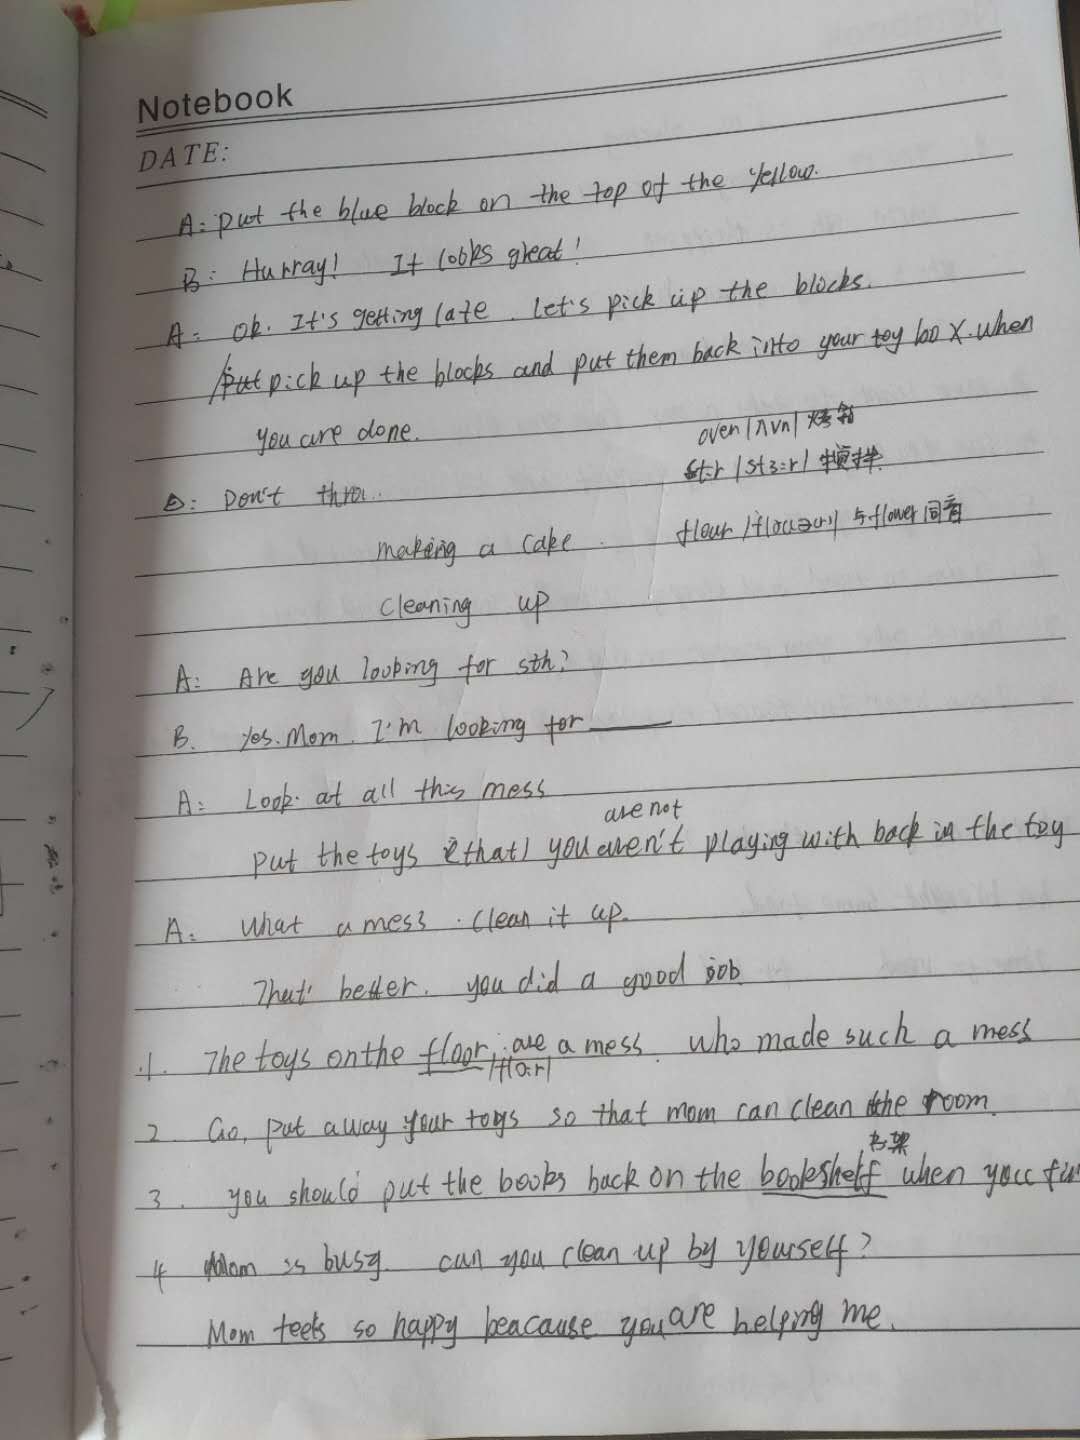 Notebook
DATE:
A: put the blue block on the top of the yellow.
B: Hurray! It looks great!
A: Ok. It's getting late. let's pick up the blocks.
pick up the blocks and put them back into your toy box. when
you are done.
oven |ʌvn| 烤箱
B: Don't throw..
stir |st3:r| 搅拌
making a cake.
flour |flauər| 与flower同音
cleaning up
A: Are you looking for sth?
B. Yes. Mom. I'm looking for
A: Look at all this mess
are not
put the toys (that) you aren't playing with back in the toy
A: What a mess. clean it up.
That' better. you did a good job.
1. The toys on the floor, are a mess. who made such a mess
|flɔ:r|
2 Go, put away your toys so that mom can clean the room.
书架
3. you should put the books back on the bookshelf when you
4 Mom is busy. can you clean up by yourself?
Mom feels so happy beacause you are helping me.